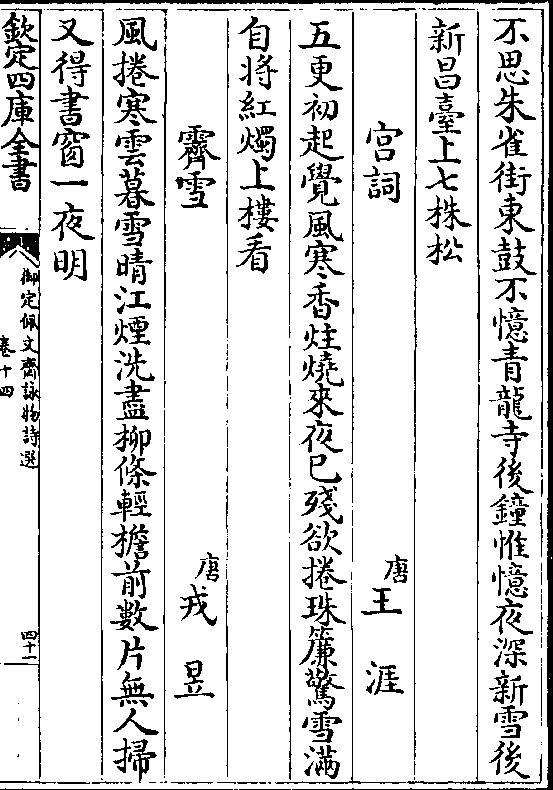 不思朱雀街東鼓不憶青龍寺後鐘惟憶夜深新雪後
新昌臺上七株松
宮詞
唐王涯
五更初起覺風寒香炷燒來夜已殘欲捲珠簾驚雪滿
自將紅燭上樓看
霽雪
唐戎昱
風捲寒雲暮雪晴江煙洗盡柳條輕檐前數片無人掃
又得書窗一夜明
欽定四庫全書
御定佩文齋詠物詩選
卷十四
四十一